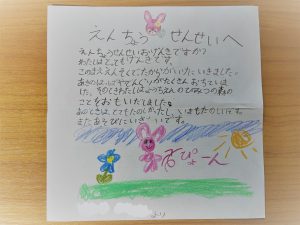 えんちょう せんせいへ
えんちょうせんせいおげんきですか？
わたしはとってもげんきです。
このまええんそくでたからがいけにいきました。
あきのはっぱやどんぐりがたくさんおちていま
した。そのときわたしはようちえんの
ことをおもいだしました。
たのしいです。
またあそびにいきたいです。
ぴょーん
より